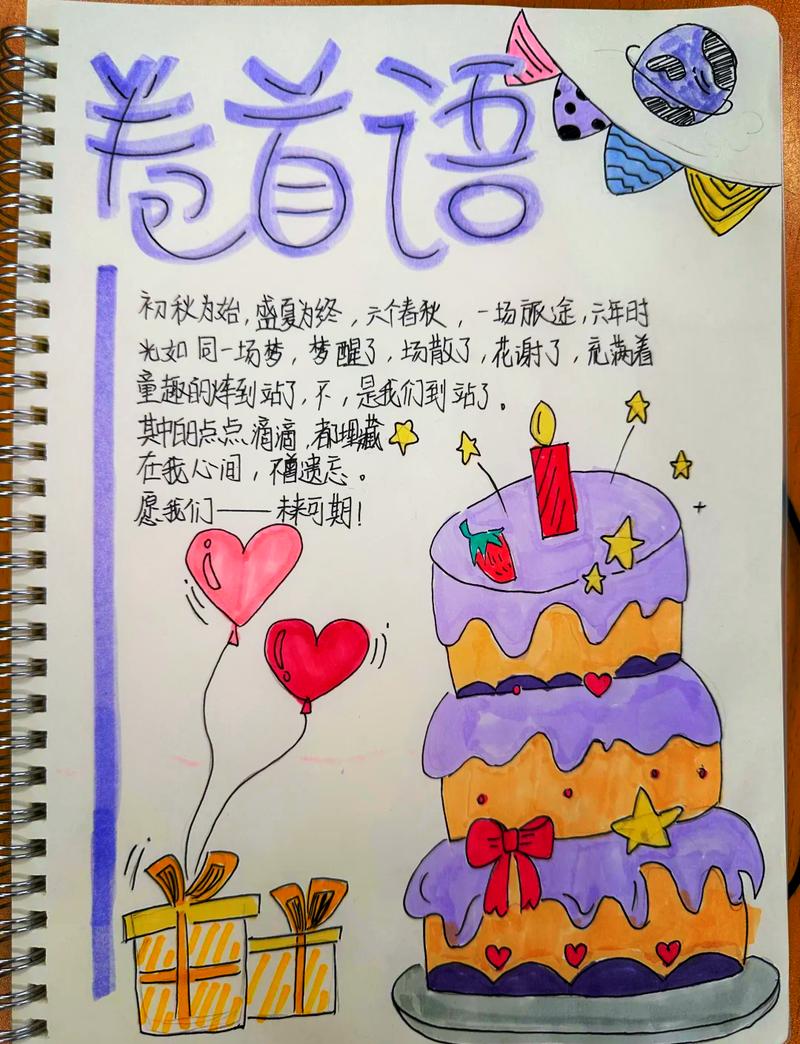 卷首语
初秋为始,盛夏为终,六个春秋,一场旅途,六年时
光如同一场梦,梦醒了,场散了,花谢了,充满着
童趣的烽到站了,不,是我们到站了。
其中的点点滴滴,都埋藏
在我心间,不曾遗忘。
愿我们——未来可期!